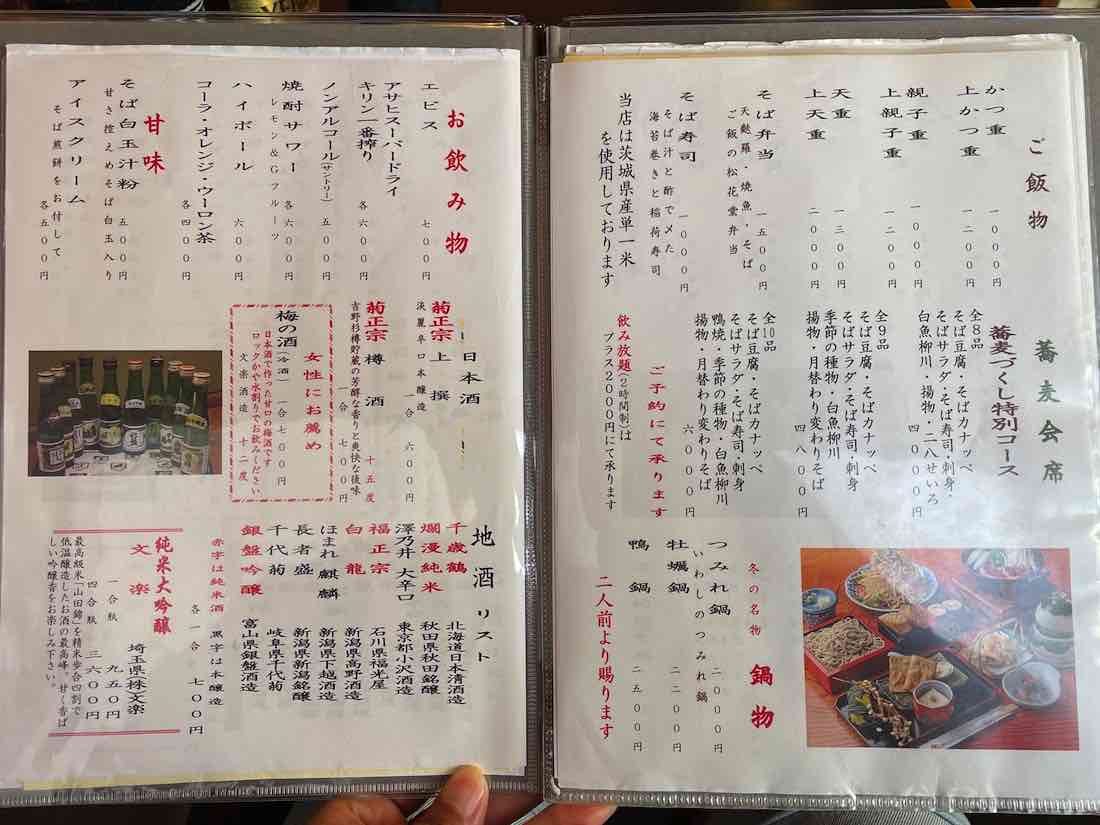 ご飯物
かつ重 一〇〇〇円
上かつ重 一二〇〇円
親子重 一〇〇〇円
上親子重 一二〇〇円
天重 一三〇〇円
上天重 二〇〇〇円
そば弁当 一五〇〇円
天麩羅・焼魚・そば
ご飯の松花堂弁当
そば寿司 一〇〇〇円
そば汁と酢で〆た
海苔巻きと稲荷寿司
当店は茨城県産単一米
を使用しております
蕎麦会席
蕎麦づくし特別コース
全8品
そば豆腐・そばカナッペ
そばサラダ・そば寿司・刺身・
白魚柳川・揚物・二八せいろ
四〇〇〇円
全9品
そば豆腐・そばカナッペ
そばサラダ・そば寿司・刺身
季節の種物・白魚柳川
揚物・月替わり変わりそば
四八〇〇円
全10品
そば豆腐・そばカナッペ
そばサラダ・そば寿司・刺身
鴨焼・季節の種物・白魚柳川
揚物・月替わり変わりそば
六〇〇〇円
ご予約にて承ります
飲み放題(2時間制)は
プラス2000円にて承ります
冬の名物 鍋物
つみれ鍋 二〇〇〇円
いわしのつみれ鍋
牡蠣鍋 二二〇〇円
鴨鍋 二五〇〇円
二人前より賜ります
お飲み物
エビス 七〇〇円
アサヒスーパードライ
キリン一番搾り 各六〇〇円
ノンアルコール(サントリー) 五〇〇円
焼酎サワー 各六〇〇円
レモン&Gフルーツ
ハイボール 六〇〇円
コーラ・オレンジ・ウーロン茶
各四〇〇円
甘味
そば白玉汁粉 五〇〇円
甘さ控えめそば白玉入り
アイスクリーム 各五〇〇円
そば煎餅をお付して
日本酒
菊正宗 上撰 一合 六〇〇円
淡麗辛口本醸造
菊正宗 樽酒 十五度
一合 七〇〇円
吉野杉樽貯蔵の芳醇な香りと爽快な後味
女性にお薦め
梅の酒(冷酒) 一合七〇〇円
日本酒で作った甘口の梅酒です
ロックかや水割りでお飲みしださい
文楽酒造 十二度
地酒リスト
千歳鶴 北海道日本清酒造
爛漫純米 秋田県秋田銘醸
澤乃井 大辛口 東京都小沢酒造
福正宗 石川県福光屋
白龍 新潟県高野酒造
ほまれ麒麟 新潟県下越酒造
長者盛 新潟県新潟銘醸
千代菊 岐阜県千代菊
銀盤吟醸 富山県銀盤酒造
赤字は純米酒 黒字は本醸造
各一合 七〇〇円
純米大吟醸
文楽 埼玉県株文楽
一合瓶 九五〇円
四合瓶 三六〇〇円
最高級米「山田錦」を精米歩合四割で
低温醸造したお酒の最高峰。甘く香ば
しい吟醸香をお楽しみ下さい。